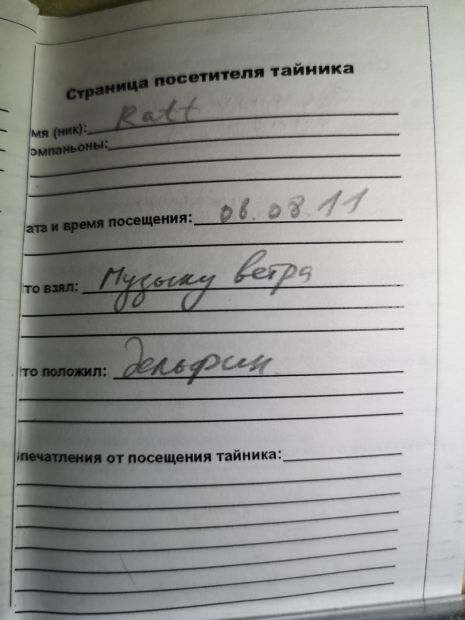 Страница посетителя тайника
мя (ник): Ratt
омпаньоны:
ата и время посещения: 06.08.11
то взял: Музыку ветра
то положил: Дельфин
печатления от посещения тайника: